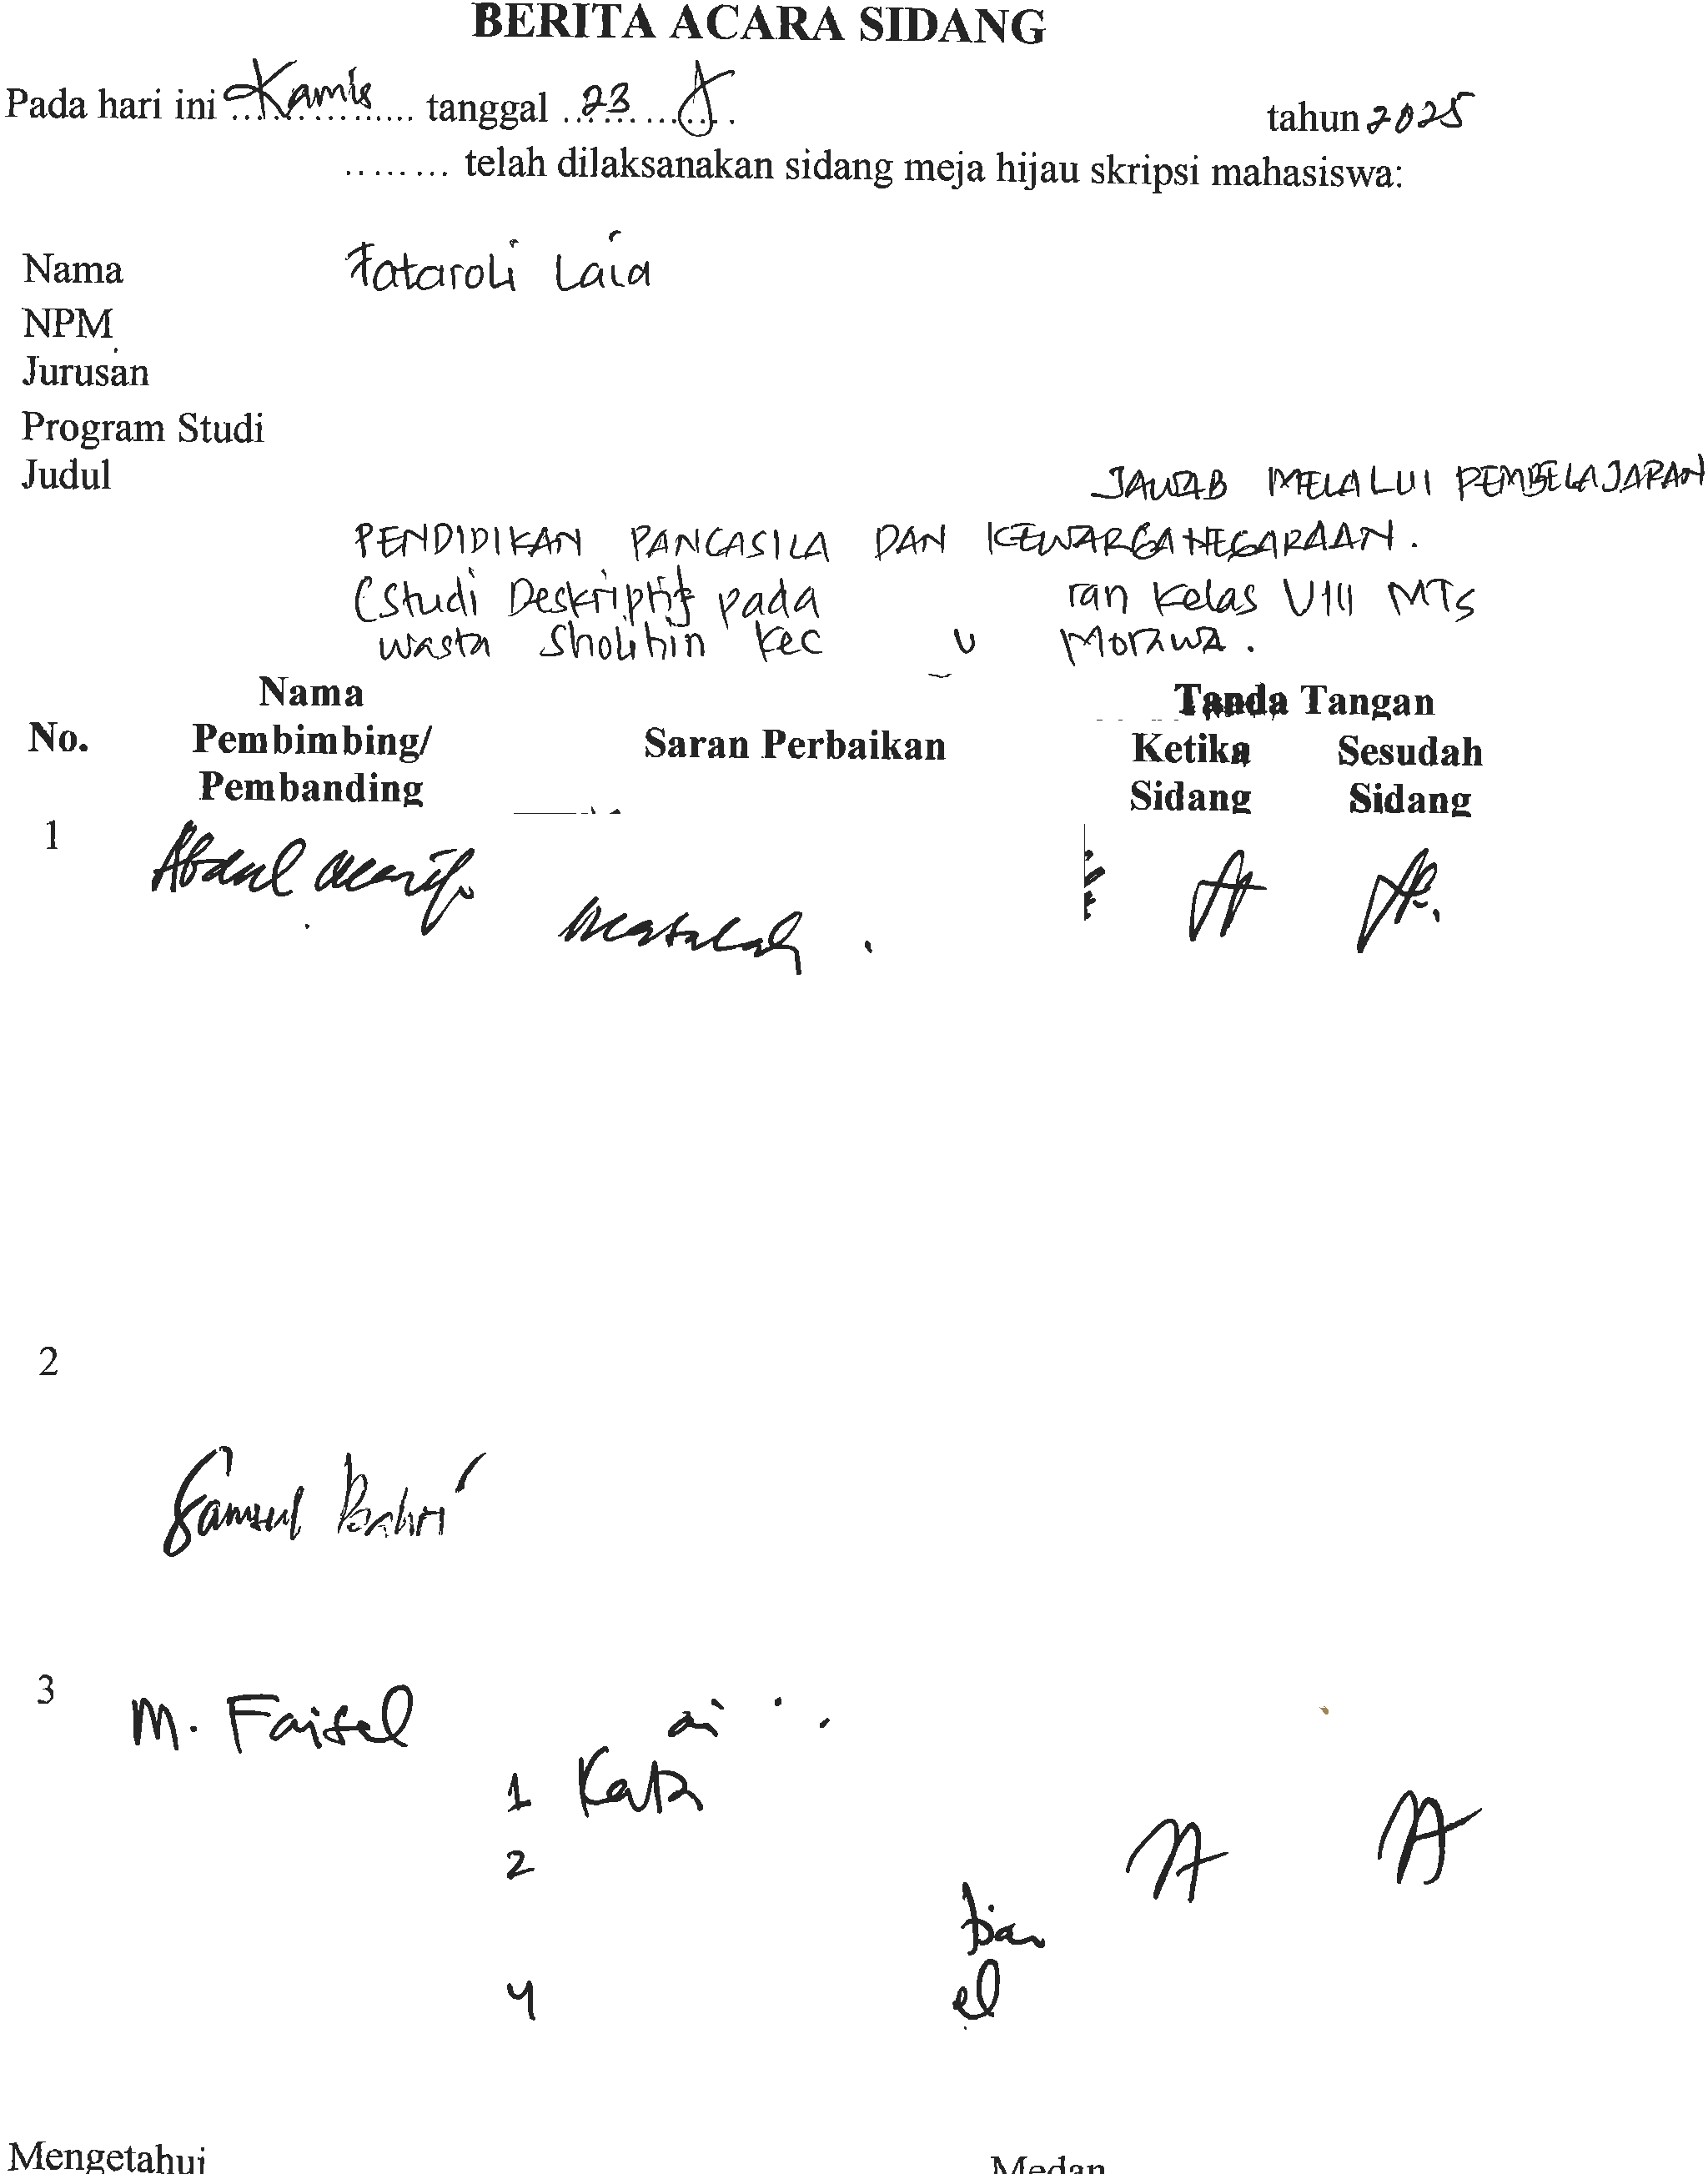 BERITA ACARA SIDANG
Pada hari ini Kamis tanggal 23 tahun 2025
........ telah dilaksanakan sidang meja hijau skripsi mahasiswa:
Nama Fataroli Laia
NPM
Jurusan
Program Studi
Judul JAWAB MELALUI PEMBELAJARAN
PENDIDIKAN PANCASILA DAN KEWARGANEGARAAN.
(Studi Deskriptif pada ran Kelas VIII MTs
wasta Sholihin Kec u Morawa.
No. Nama Pembimbing/ Pembanding Saran Perbaikan Tanda Tangan
Ketika Sidang Sesudah Sidang
1 Abdul
Masalah.
2
Samsul Bahri
3 M. Faisal
ai
1 Kata
2
4 el
Mengetahui Medan